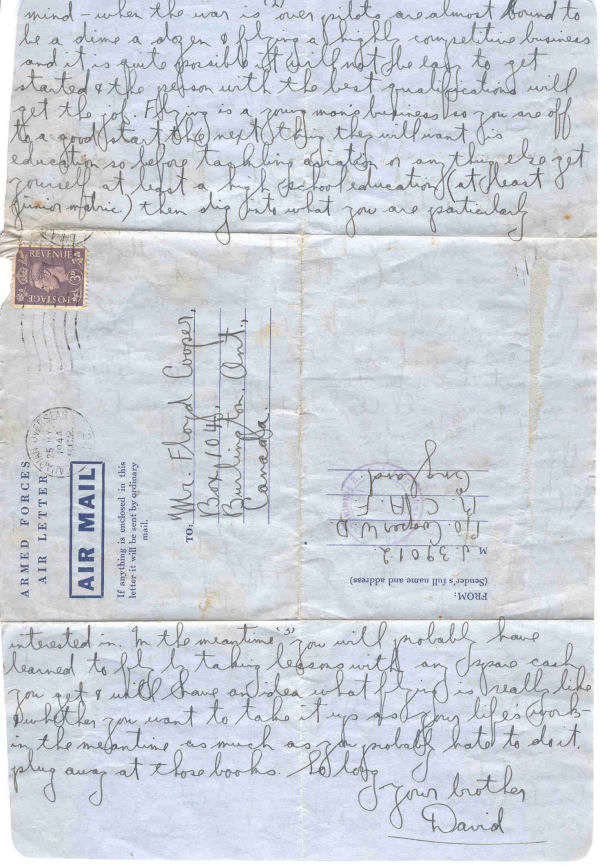 (2)
mind when the war is over pilots are almost bound to
be a dime a dozen & flying a highly competitive business
and it is quite possible it will not be easy to get
started & the person with the best qualifications will
get the job. Flying is a young man's business so you are off
to a good start the next thing they will want is
education so before tackling aviation or anything else get
yourself at least a high school education (at least
junior matric.) then dig into what you are particularly
REVENUE
POSTAGE
3D
25 MY
1944
ARMED FORCES
AIR LETTER
AIR MAIL
If anything is enclosed in this
letter it will be sent by ordinary
mail.
TO:
Mr. Floyd Cooper,
Box 1040,
Burlington, Ont.,
Canada
FROM:
(Sender's full name and address)
J.39012.
P/O Cooper W.D.
R.C.A.F.
England
(3)
interested in. In the meantime, you will probably have
learned to fly by taking lessons with any spare cash
you get & will have an idea what flying is really like
& whether you want to take it up as your life's work
in the meantime as much as you probably hate to do it,
plug away at those books. So long
Your brother
David